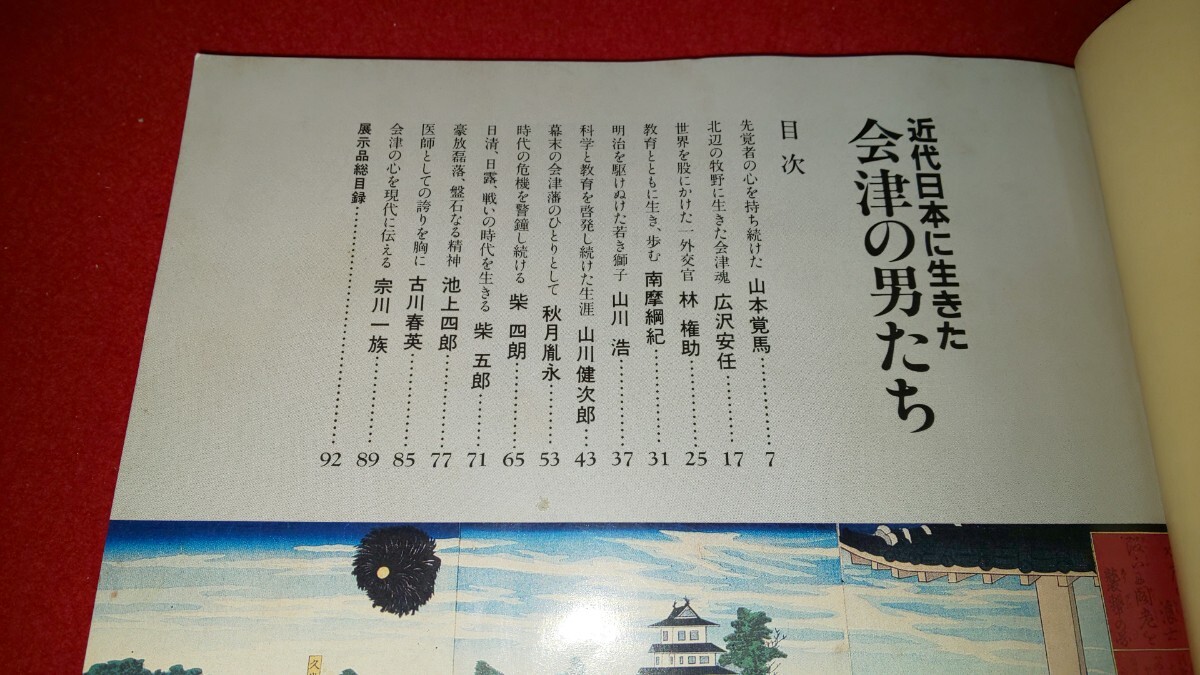 近代日本に生きた
会津の男たち
目次
先覚者の心を持ち続けた 山本覚馬…………7
北辺の牧野に生きた会津魂 広沢安任…………17
世界を股にかけた一外交官 林 権助…………25
教育とともに生き、歩む 南摩綱紀…………31
明治を駆けぬけた若き獅子 山川 浩…………37
科学と教育を啓発し続けた生涯 山川健次郎…………43
幕末の会津藩のひとりとして 秋月胤永…………53
時代の危機を警鐘し続ける 柴 四朗…………65
日清、日露、戦いの時代を生きる 柴 五郎…………71
豪放磊落、盤石なる精神 池上四郎…………77
医師としての誇りを胸に 古川春英…………85
会津の心を現代に伝える 宗川一族…………89
展示品総目録…………92